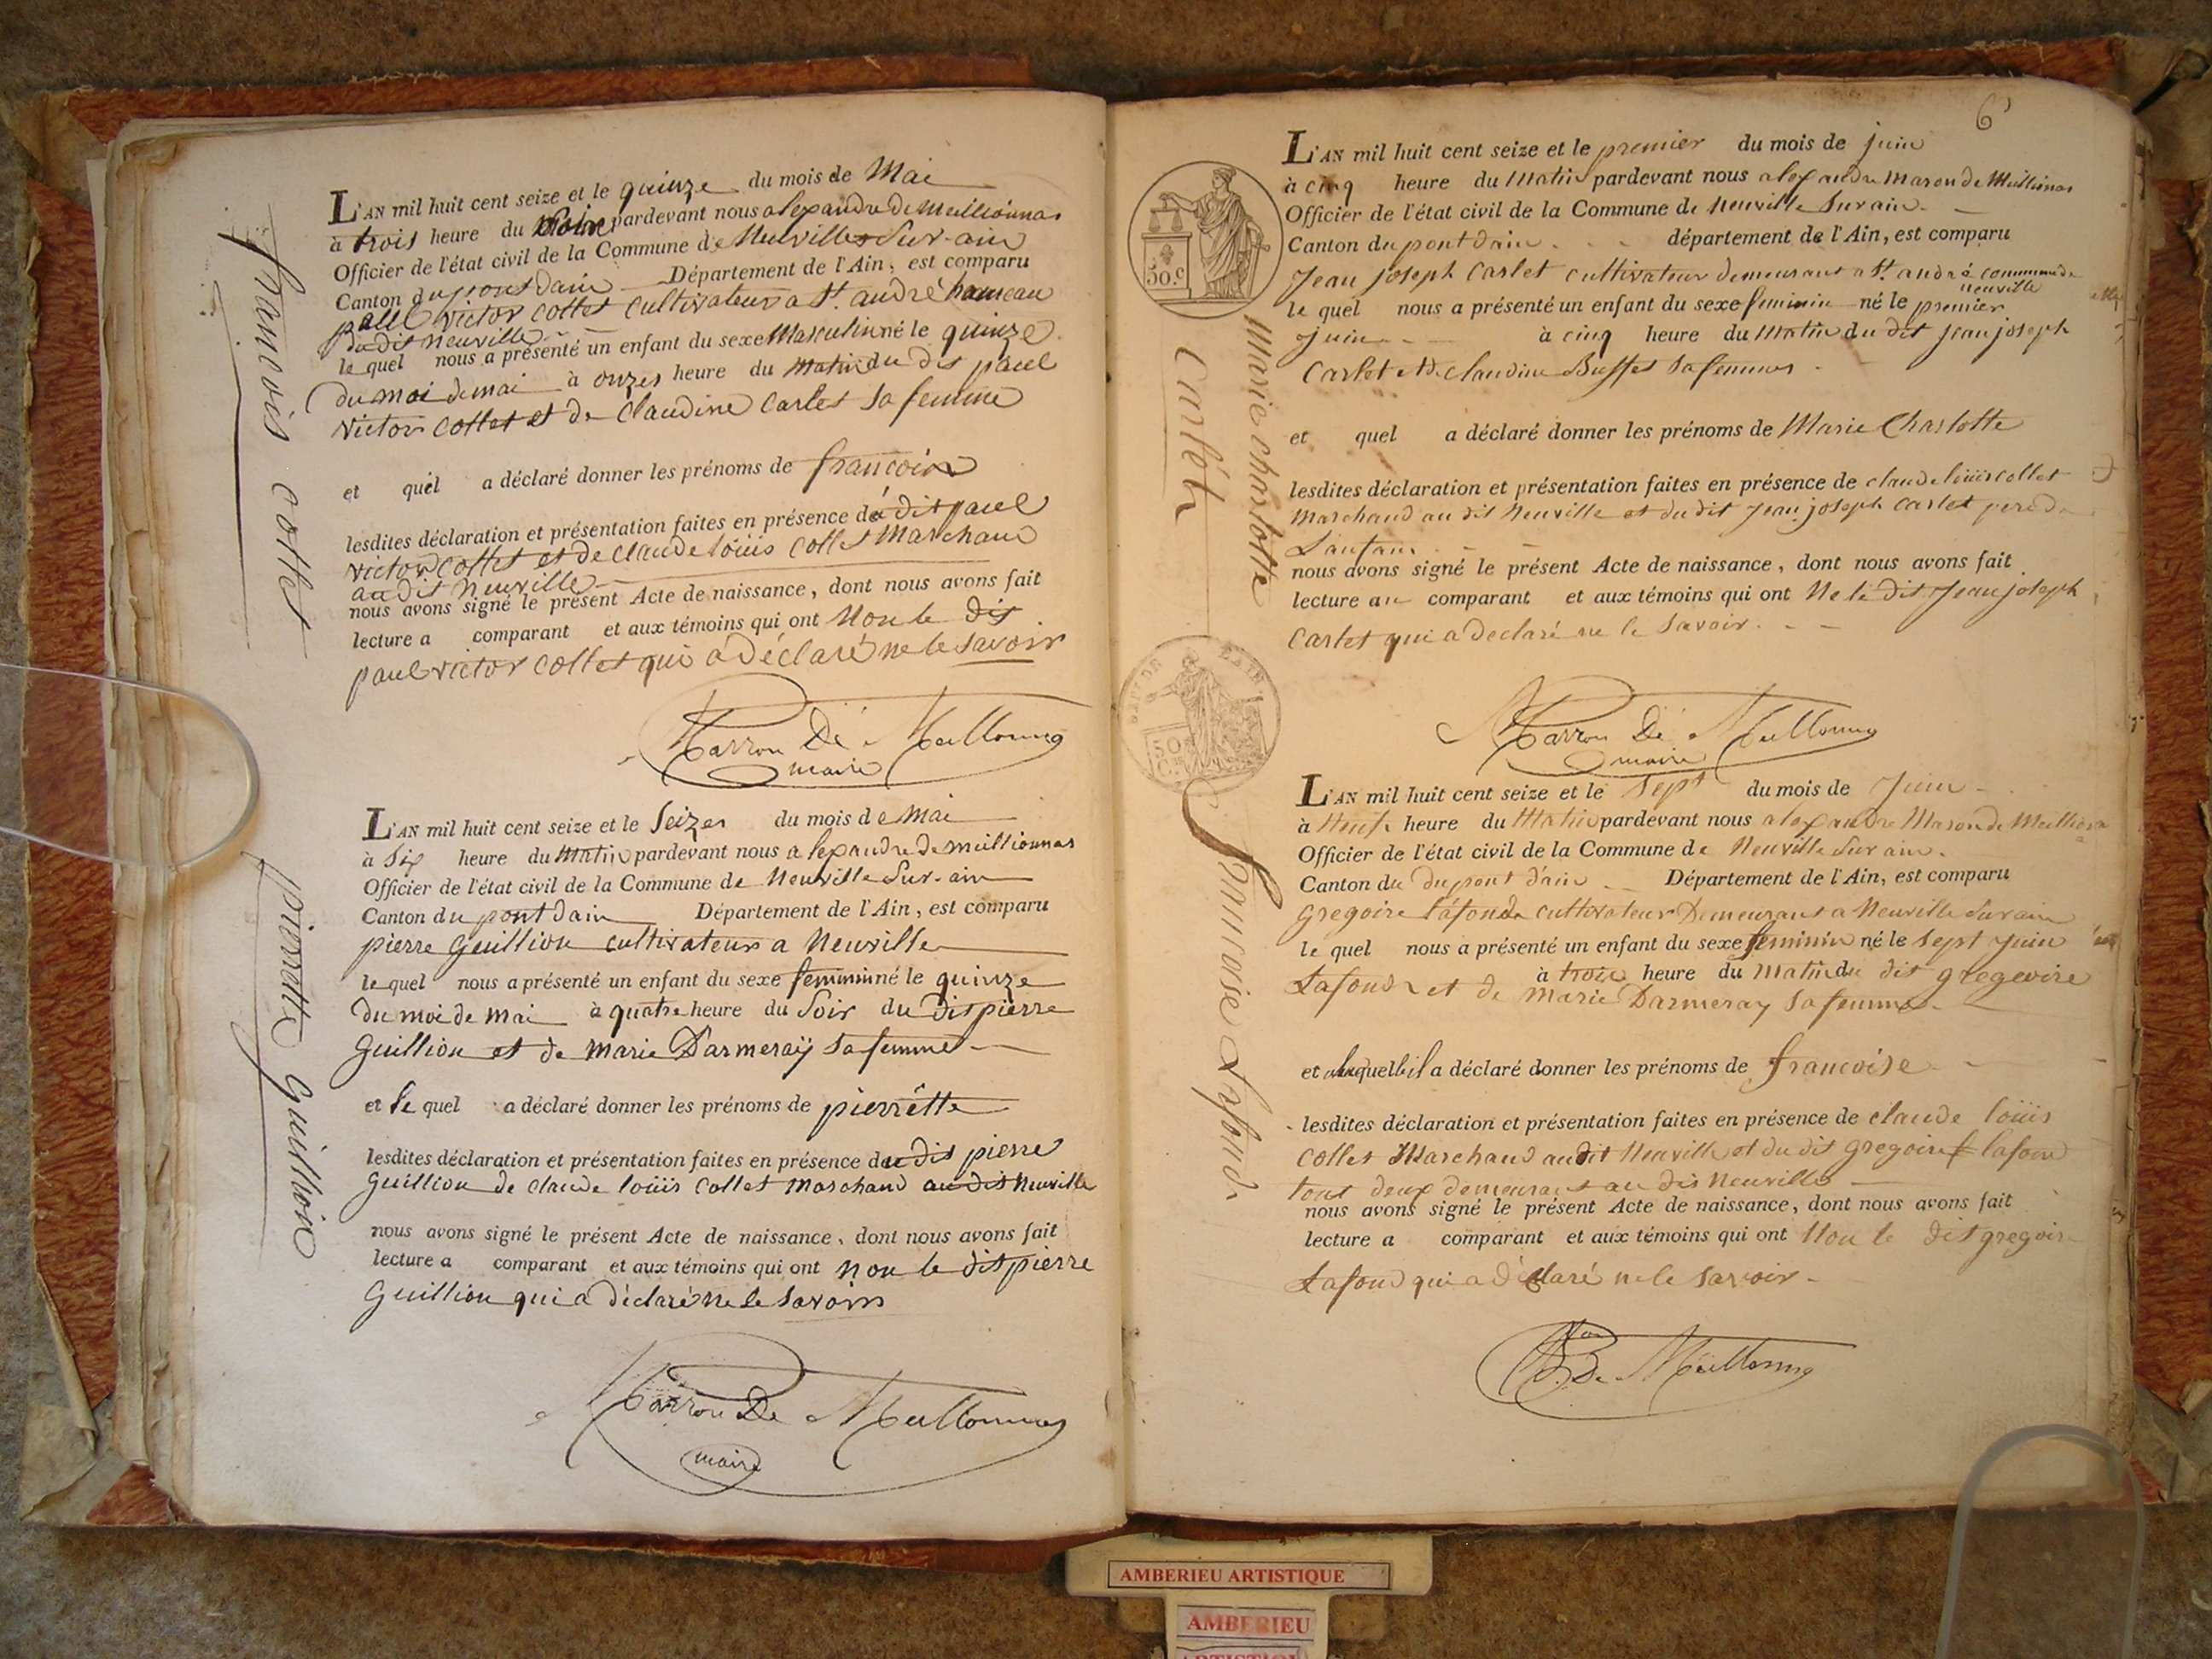 françois collet
L'AN mil huit cent seize et le quinze du mois de Mai
à trois heure du pardevant nous alexandre de meillionnas
Officier de l'état civil de la Commune de Neuville Sur-ain
Canton du pont dain Département de l'Ain, est comparu
paul victor collet cultivateur a St. andré hameau
du dit neuville
le quel nous a présenté un enfant du sexe Masculin né le quinze
du moi de mai à onzes heure du Matin du dit paul
victor collet et de Claudine Carlet sa femme
et quel a déclaré donner les prénoms de francois
lesdites déclaration et présentation faites en présence de dit paul
victor collet et de claude loüis collet Marchand
au dit Neuville
nous avons signé le présent Acte de naissance, dont nous avons fait
lecture a comparant et aux témoins qui ont Non le dit
paul victor collet qui a déclaré ne le savoir
Marron De Meillonnas
maire
pierrette guillion
L'AN mil huit cent seize et le Seizes du mois de Mai
à Six heure du Matin pardevant nous alexandre de meillionnas
Officier de l'état civil de la Commune de Neuville Sur-ain
Canton du pont dain Département de l'Ain, est comparu
pierre Guillion cultivateur a Neuville
le quel nous a présenté un enfant du sexe feminin né le quinze
du moi de mai à quatre heure du Soir du dit pierre
Guillion et de Marie Darmeraÿ sa femme
et le quel a déclaré donner les prénoms de pierrétte
lesdites déclaration et présentation faites en présence du dit pierre
Guillion de claude loüis collet Marchand au dit Neuville
nous avons signé le présent Acte de naissance, dont nous avons fait
lecture a comparant et aux témoins qui ont Non le dit pierre
Guillion qui a déclaré ne le savoir
Marron De Meillonnas
maire
6
50 c.
Marie charlotte
Carlet
L'AN mil huit cent seize et le premier du mois de juin
à cinq heure du Matin pardevant nous alexandre Maron de Meillionas
Officier de l'état civil de la Commune de Neuville Sur ain
Canton du pont dain département de l'Ain, est comparu
Jean joseph Carlet cultivateur demeurant a St. andré commune de
neuville
le quel nous a présenté un enfant du sexe feminin né le premier
juin à cinq heure du Matin du dit jean joseph
Carlet et de claudine Buffet sa femme
et quel a déclaré donner les prénoms de Marie Charlotte
lesdites déclaration et présentation faites en présence de claude loüis collet
Marchand au dit Neuville et du dit jean joseph Carlet pere de
Lanfant
nous avons signé le présent Acte de naissance, dont nous avons fait
lecture au comparant et aux témoins qui ont Ne le dit jean joseph
Carlet qui a declaré ne le savoir
Marron De Meillonnas
maire
50 C.
françoise Lafond
L'AN mil huit cent seize et le Sept du mois de Juin
à Neuf heure du Matin pardevant nous alexandre Maron de
Officier de l'état civil de la Commune de Neuville Sur ain
Canton du du pont d'ain Département de l'Ain, est comparu
gregoire lafond cultivateur Demeurant a Neuville Sur ain
le quel nous a présenté un enfant du sexe feminin né le Sept Juin
à trois heure du Matin du dit gregoire
Lafond et de Marie Darmeray sa femme
et quel il a déclaré donner les prénoms de francoise
lesdites déclaration et présentation faites en présence de claude loüis
collet Marchand au dit Neuville et du dit gregoire lafond
tout deux demeurant au dit Neuville
nous avons signé le présent Acte de naissance, dont nous avons fait
lecture a comparant et aux témoins qui ont Non le dit gregoire
Lafond qui a déclaré ne le savoir
De Meillonnas
AMBERIEU ARTISTIQUE
AMBERIEU
ARTISTIQUE